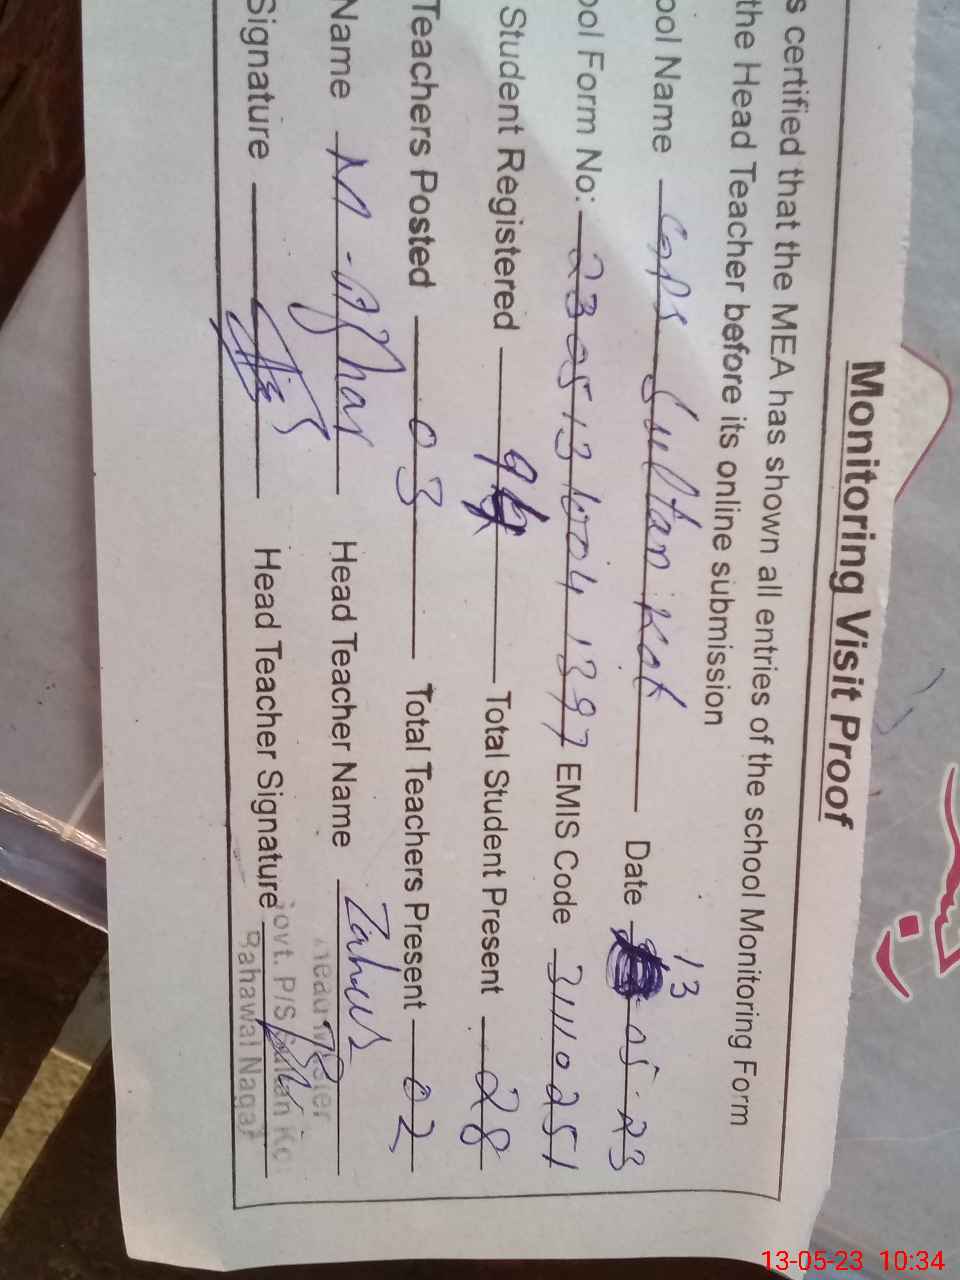 Monitoring Visit Proof
s certified that the MEA has shown all entries of the school Monitoring Form
the Head Teacher before its online submission
ool Name GPS Sultan Kot Date 13-05-23
ool Form No: EMIS Code 31110251
Student Registered 94 Total Student Present 28
Teachers Posted 03 Total Teachers Present 02
Name M-Azhar Head Teacher Name
Signature Head Teacher Signature
Govt. P/S Sultan Ko
Bahawal Nagar
13-05-23 10:34